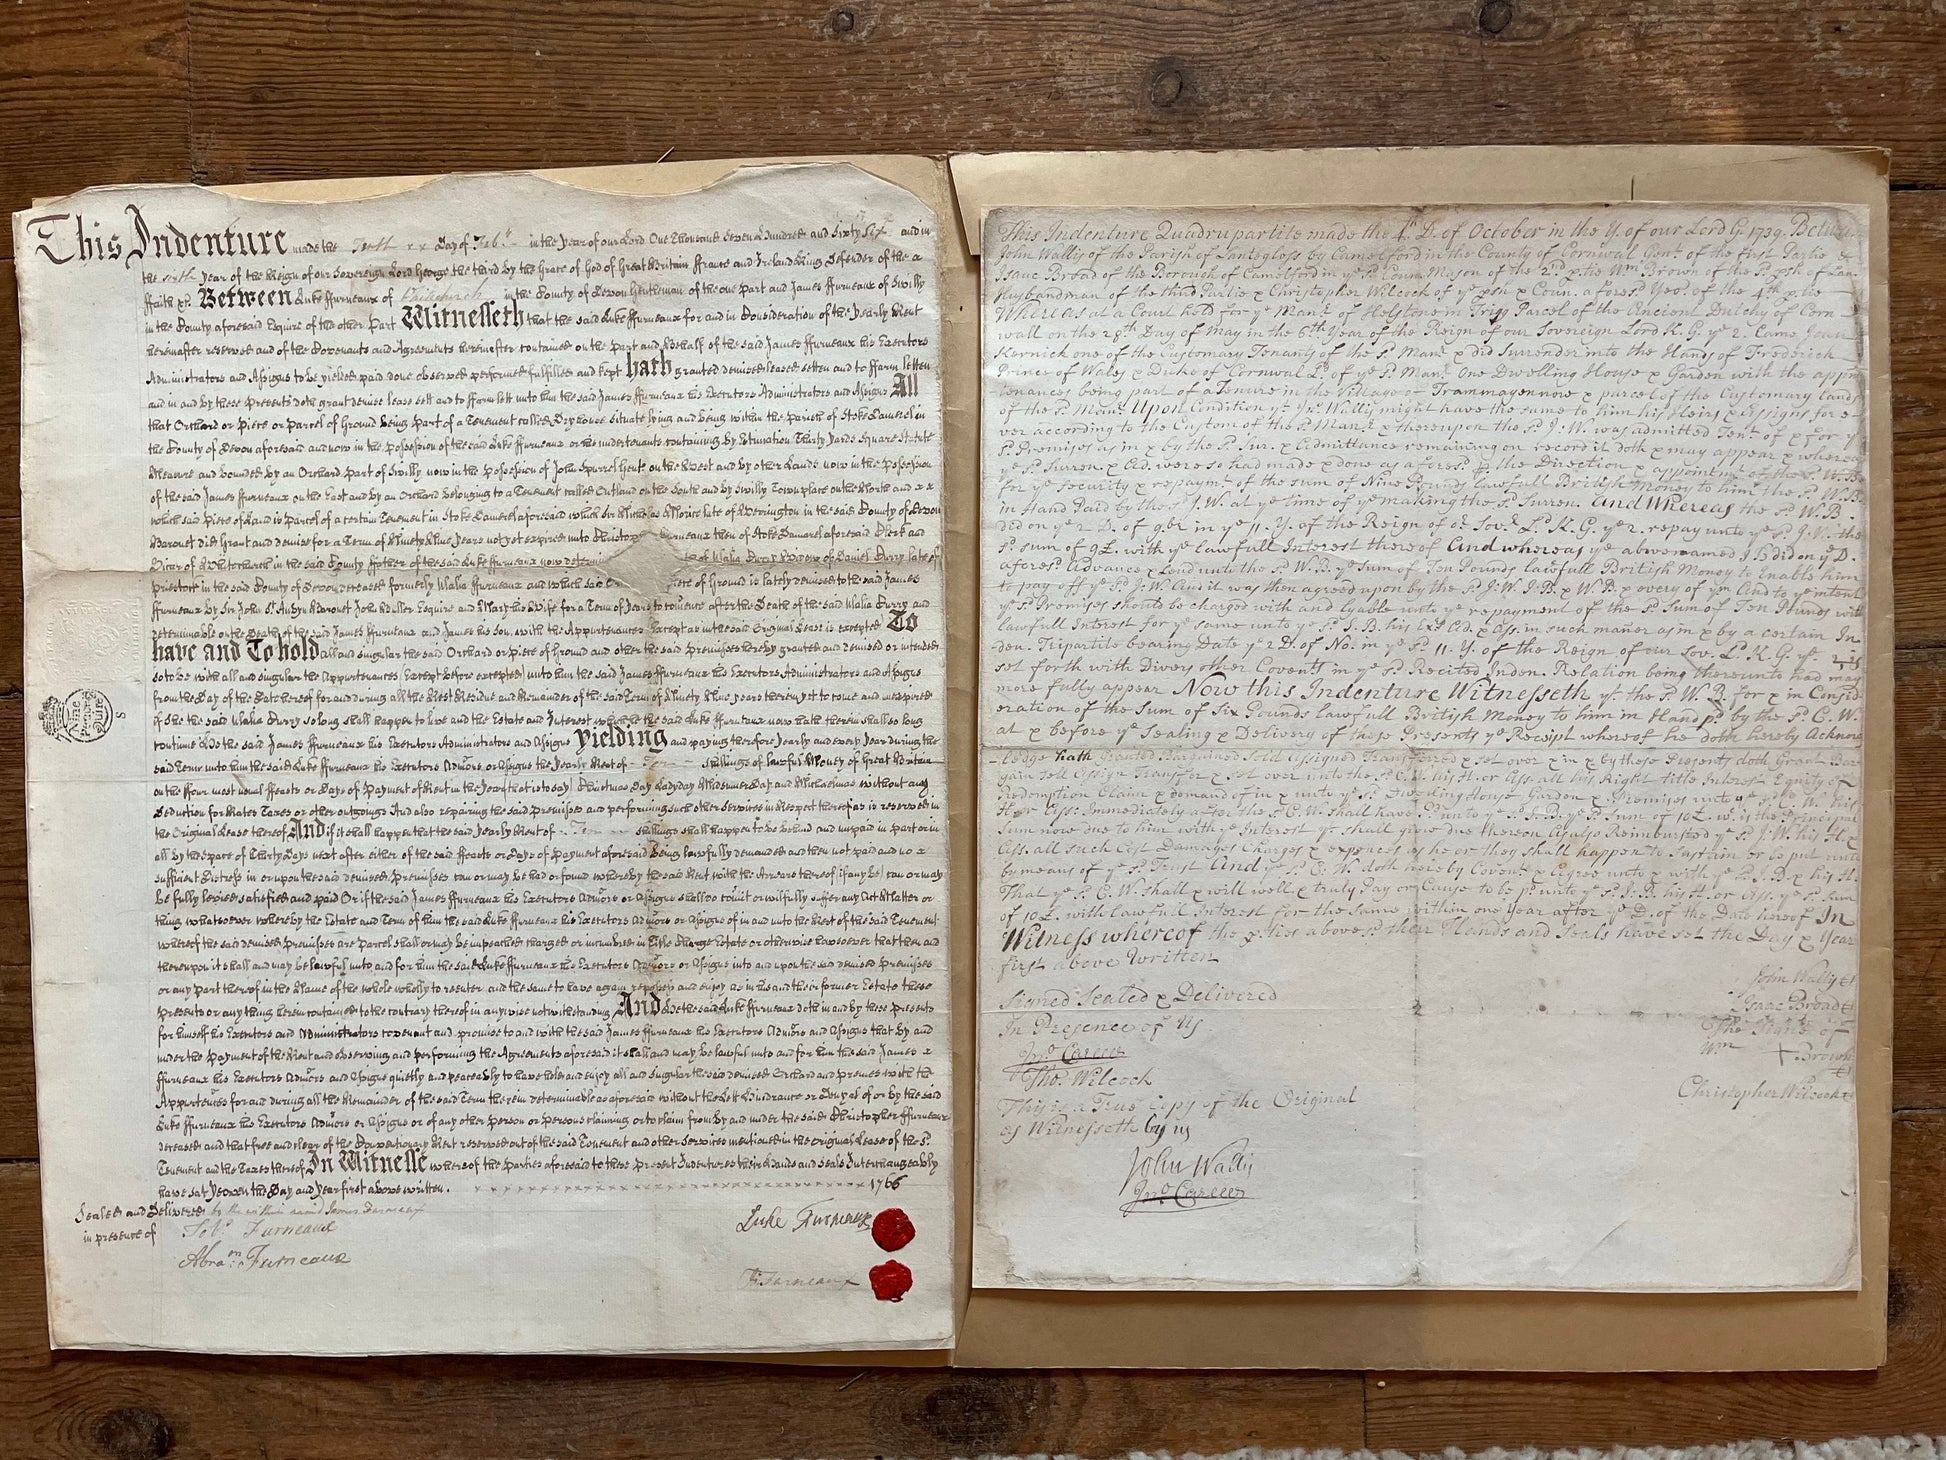 This Indenture made the Tenth xx Day of Feb.ry in the Year of our Lord One Thousand Seven Hundred and Sixty Six and in
the sixth Year of the Reign of our Sovereign Lord George the third by the Grace of God of Great Britain France and Ireland King Defender of the
ffaith &c. Between Luke ffurneaux of in the County of Devon Gentleman of the one part and James ffurneaux of Swilly
in the County aforesaid Esquire of the other Part Witnesseth that the said Luke ffurneaux for and in Consideration of the Yearly Rent
hereinafter reserved and of the Covenants and Agreements hereinafter contained on the Part and Behalf of the said James ffurneaux his Executors
Administrators and Assigns to be yielded paid done observed performed fulfilled and kept hath granted demised leased setten and to ffarm letten
and in and by these Presents doth grant demise lease sett and to ffarm lett unto him the said James ffurneaux his Executors Administrators and Assigns All
that Orchard or Piece or Parcel of Ground being Part of a Tenement called situate lying and being within the parish of Stoke Damerel in
the County of Devon aforesaid and now in the possession of the said Luke ffurneaux or his undertenants containing by Estimation Thirty Yards Square Statute
Measure and bounded by an Orchard part of Swilly now in the possession of John Spurrel Gent on the West and by other Lands now in the Possession
of the said James ffurneaux on the East and by an Orchard belonging to a Tenement called Outland on the South and by Swilly Townplace on the North and x x
which said Piece of Land is parcel of a certain Tenement in Stoke Damerel aforesaid which Sr Nicholas Morice late of Werrington in the said County of Devon
Baronet did Grant and demise for a Term of Ninety Nine Years not yet expired unto Christop ffurneaux then of Stoke Damerel aforesaid Clerk and
Vicar of Whitchurch in the said County ffather of the said Luke ffurneaux now of Curry Widow of Daniel Curry late of
in the said County of Devon deceased formerly ffurneaux and which said Piece of Ground is lately demised to the said James
ffurneaux by Sir John St Aubyn Baronet John Buller Esquire and Mary his Wife for a Term of Years to comence after the Death of the said Curry and
determinable on the Death of the said James ffurneaux and James his Son, with the Appurtenances Except as in the said Original Lease is excepted To
have and To hold all and singular the said Orchard or Piece of Ground and other the said Premisses hereby granted and demised or intended
so to be with all and singular the Appurtenances (except before excepted) unto him the said James ffurneaux his Executors Administrators and Assigns
from the Day of the Date hereof for and during all the Rest Residue and Remainder of the said Term of Ninety Nine Years therein yet to come and unexpired
if She the said Curry so long shall happen to live and the Estate and Interest which the said Luke ffurneaux now hath therein shall so long
continue He the said James ffurneaux his Executors Administrators and Assigns yielding and paying therefore Yearly and every Year during the
said Term unto him the said Luke ffurneaux his Executors Admors or Assigns the Yearly Rent of - Ten - shillings of lawful Money of Great Britain
on the four most usual ffeasts or Days of Payment of Rent in the Year that is to say Christmas Day Ladyday Midsummer Day and Michaelmas without any
Deduction for Rates Taxes or other outgoings And also repairing the said Premisses and performing such other Services in Respect thereof as is reserved in
the Original Lease thereof And if it shall happen that the said Yearly Rent of - Ten - shillings shall happen to be behind and unpaid in part or in
all by the space of Thirty Days next after either of the said ffeasts or Days of Payment aforesaid being lawfully demanded and then not paid and no x
sufficient Distress in or upon the said demised Premisses can or may be had or found whereby the said Rent with the Arrears thereof (if any be) can or may
be fully levied satisfied and paid Or if the said James ffurneaux his Executors Admors or Assigns shall do comit or wilfully suffer any Act Matter or
thing whatsoever whereby the Estate and Term of him the said Luke ffurneaux his Executors Admors or Assigns of in and unto the Rest of the said Tenement
whereof the said demised Premisses are Parcel shall or may be impeached charged or incumbred in Title Charge Estate or otherwise howsoever that then and
thereupon it shall and may be lawful unto and for him the said Luke ffurneaux his Executors Admors or Assigns into and upon the said demised Premisses
or any part thereof in the Name of the whole wholly to reenter and the same to have again repossess and enjoy as in his and their former Estate these
Presents or any thing herein contained to the contrary thereof in any wise notwithstanding And He the said Luke ffurneaux doth in and by these presents
for himself his Executors and Administrators covenant and promise to and with the said James ffurneaux his Executors Admors and Assigns that by and
under the payment of the Rent and observing and performing the Agreements aforesaid it shall and may be lawful unto and for him the said James x
ffurneaux his Executors Admors and Assigns quietly and peaceably to have hold and enjoy all and singular the said demised Orchard and premes with the
Appurtences for and during all the Remainder of the said Term therein determinable as aforesaid without the Lett Hindrance or Denyal of or by the said
Luke ffurneaux his Executors Admors or Assigns or of any other person or persons claiming or to claim from by and under the said Christopher ffurneaux
deceased and that free and clear of the Conventionary Rent reserved out of the said Tenement and other Services mentioned in the original Lease of the sd.
Tenement and the Taxes thereof In Witness whereof the Parties aforesaid to these Present Indentures their Hands and Seals Interchangeably
have set Yeoven the Day and Year first above written. 1766
Sealed and Delivered by the within named James Furneaux
in presence of
Tob.s Furneaux
Abra.m Furneaux
Luke Furneaux
Js Furneaux
This Indenture Quadrupartite made the D. of October in the Y. of our Lord G. 1739. Between
John Wallis of the Parish of Lantegloss by Camelford in the County of Cornwal Gent. of the first Partie &
Isaac Broad of the Borough of Camelford in ye sd. Coun. Mason of the 2nd ptie Wm Brown of the sd. psh of Lan
Husbandman of the third Partie & Christopher Wilcock of ye psh & Coun. aforesd Yeo. of the 4th ptie
Whereas at a Court held for ye Manr of Helstone in Trigg Parcel of the Ancient Dutchy of Corn
wall on the 28th Day of May in the 6th Year of the Reign of our Sovereign Lord K. G. ye 2. Came Joan
Kernick one of the Customary Tenants of the sd. Manr & did Surrender into the Hands of Frederick
Prince of Wales & Duke of Cornwal Ld. of ye sd. Manr One Dwelling House & Garden with the appur
tenances being part of a Tenure in the Village of Trammagennow & parcel of the Customary Lands
of the sd. Manr Upon Condition yt Jno Wallis might have the same to him his Heirs & Assigns for e-
ver according to the Custom of the sd Manr & thereupon the sd J: W. was admitted Tent of & for ye
sd. Premises as in & by the sd. Sur. & Admittance remaining on record it doth & may appear & whereas
ye sd. Surren. & Ad. were so had made & done as aforesd by the Direction & appointmt of the sd W. B.
for ye security & repaymt of the sum of Nine Pounds lawfull British Money to him the sd W. B.
in Hand Paid by the sd J. W. at ye time of ye making the sd. Surren. And Whereas the sd W. B.
did on ye 2 D. of 9br in ye 11. Y. of the Reign of or Sov. Ld. K. G. ye 2. repay unto ye sd. J. W. the
sd. sum of 9L. with ye lawfull Interest thereof And whereas ye abovenamed I B did on ye D.
aforesd Advance & Lend unto the sd W. B. ye sum of Ten Pounds lawfull British Money to Enable him
to pay off ye sd J: W. And it was then agreed upon by the sd J. W. I. B. & W. B. & every of ym And to ye intent
ye sd. Premises should be charged with and lyable unto ye repayment of the sd Sum of Ten Pounds with
lawfull Interest for ye same unto ye sd. I. B. his Exs Ad. & Ass. in such maner as in & by a certain In
den. Tripartite bearing Date ye 2 D. of No. in ye sd 11. Y. of the Reign of our Sov. Ld K. G. ye 2
set forth with Divers other Covents in ye sd. Recited Inden. Relation being thereunto had may
more fully appear Now this Indenture Witnesseth yt the sd W. B. for & in Consid
eration of the sum of Six Pounds lawfull British Money to him in Hand pd by the sd. C. W.
at & before ye Sealing & Delivery of these Presents ye Receipt whereof he doth hereby Acknow
ledge hath Granted Bargained Sold Assigned Transferred & set over & in & by these Presents doth Grant Bar
gain sell Assign Transfer & set over unto the sd C. W. his H. or Ass. all his Right title Interest Equity of
Redemption Claim & demand of in & unto ye sd. Dwelling House Garden & Premises unto ye sd. C. W. his
H. or Ass. Immediately after the sd C. W. shall have Pd unto ye sd. I. B. ye sd Sum of 10L. wch is the Principal
Sum now due to him with ye Interest yt shall grow due thereon As also Reimbursed ye sd J: W. his H. &
Ass. all such Cost Damages Charges & expences as he or they shall happen to Sustain or be put unto
by means of ye sd Trust And ye sd C. W. doth hereby Covent & Agree unto & with ye sd. I. B. & his H.
That ye sd C. W. shall & will well & truly Pay or Cause to be pd unto ye sd. I. B. his H. or Ass. ye sd Sum
of 10L. with lawfull Interest for the same within one Year after ye D. of the Date hereof In
Witness whereof the pties abovesd their Hands and Seals have set the Day & Year
first above Written
Signed Sealed & Delivered
In Presence of us
Jno. Carew
Tho.s Wilcock
John Wallis
Isaac Broad
The Signe of
Wm + Brown
Christopher Wilcock
This is a True Copy of the Original
As Witnesseth by us
John Wallis
Jno. Carew